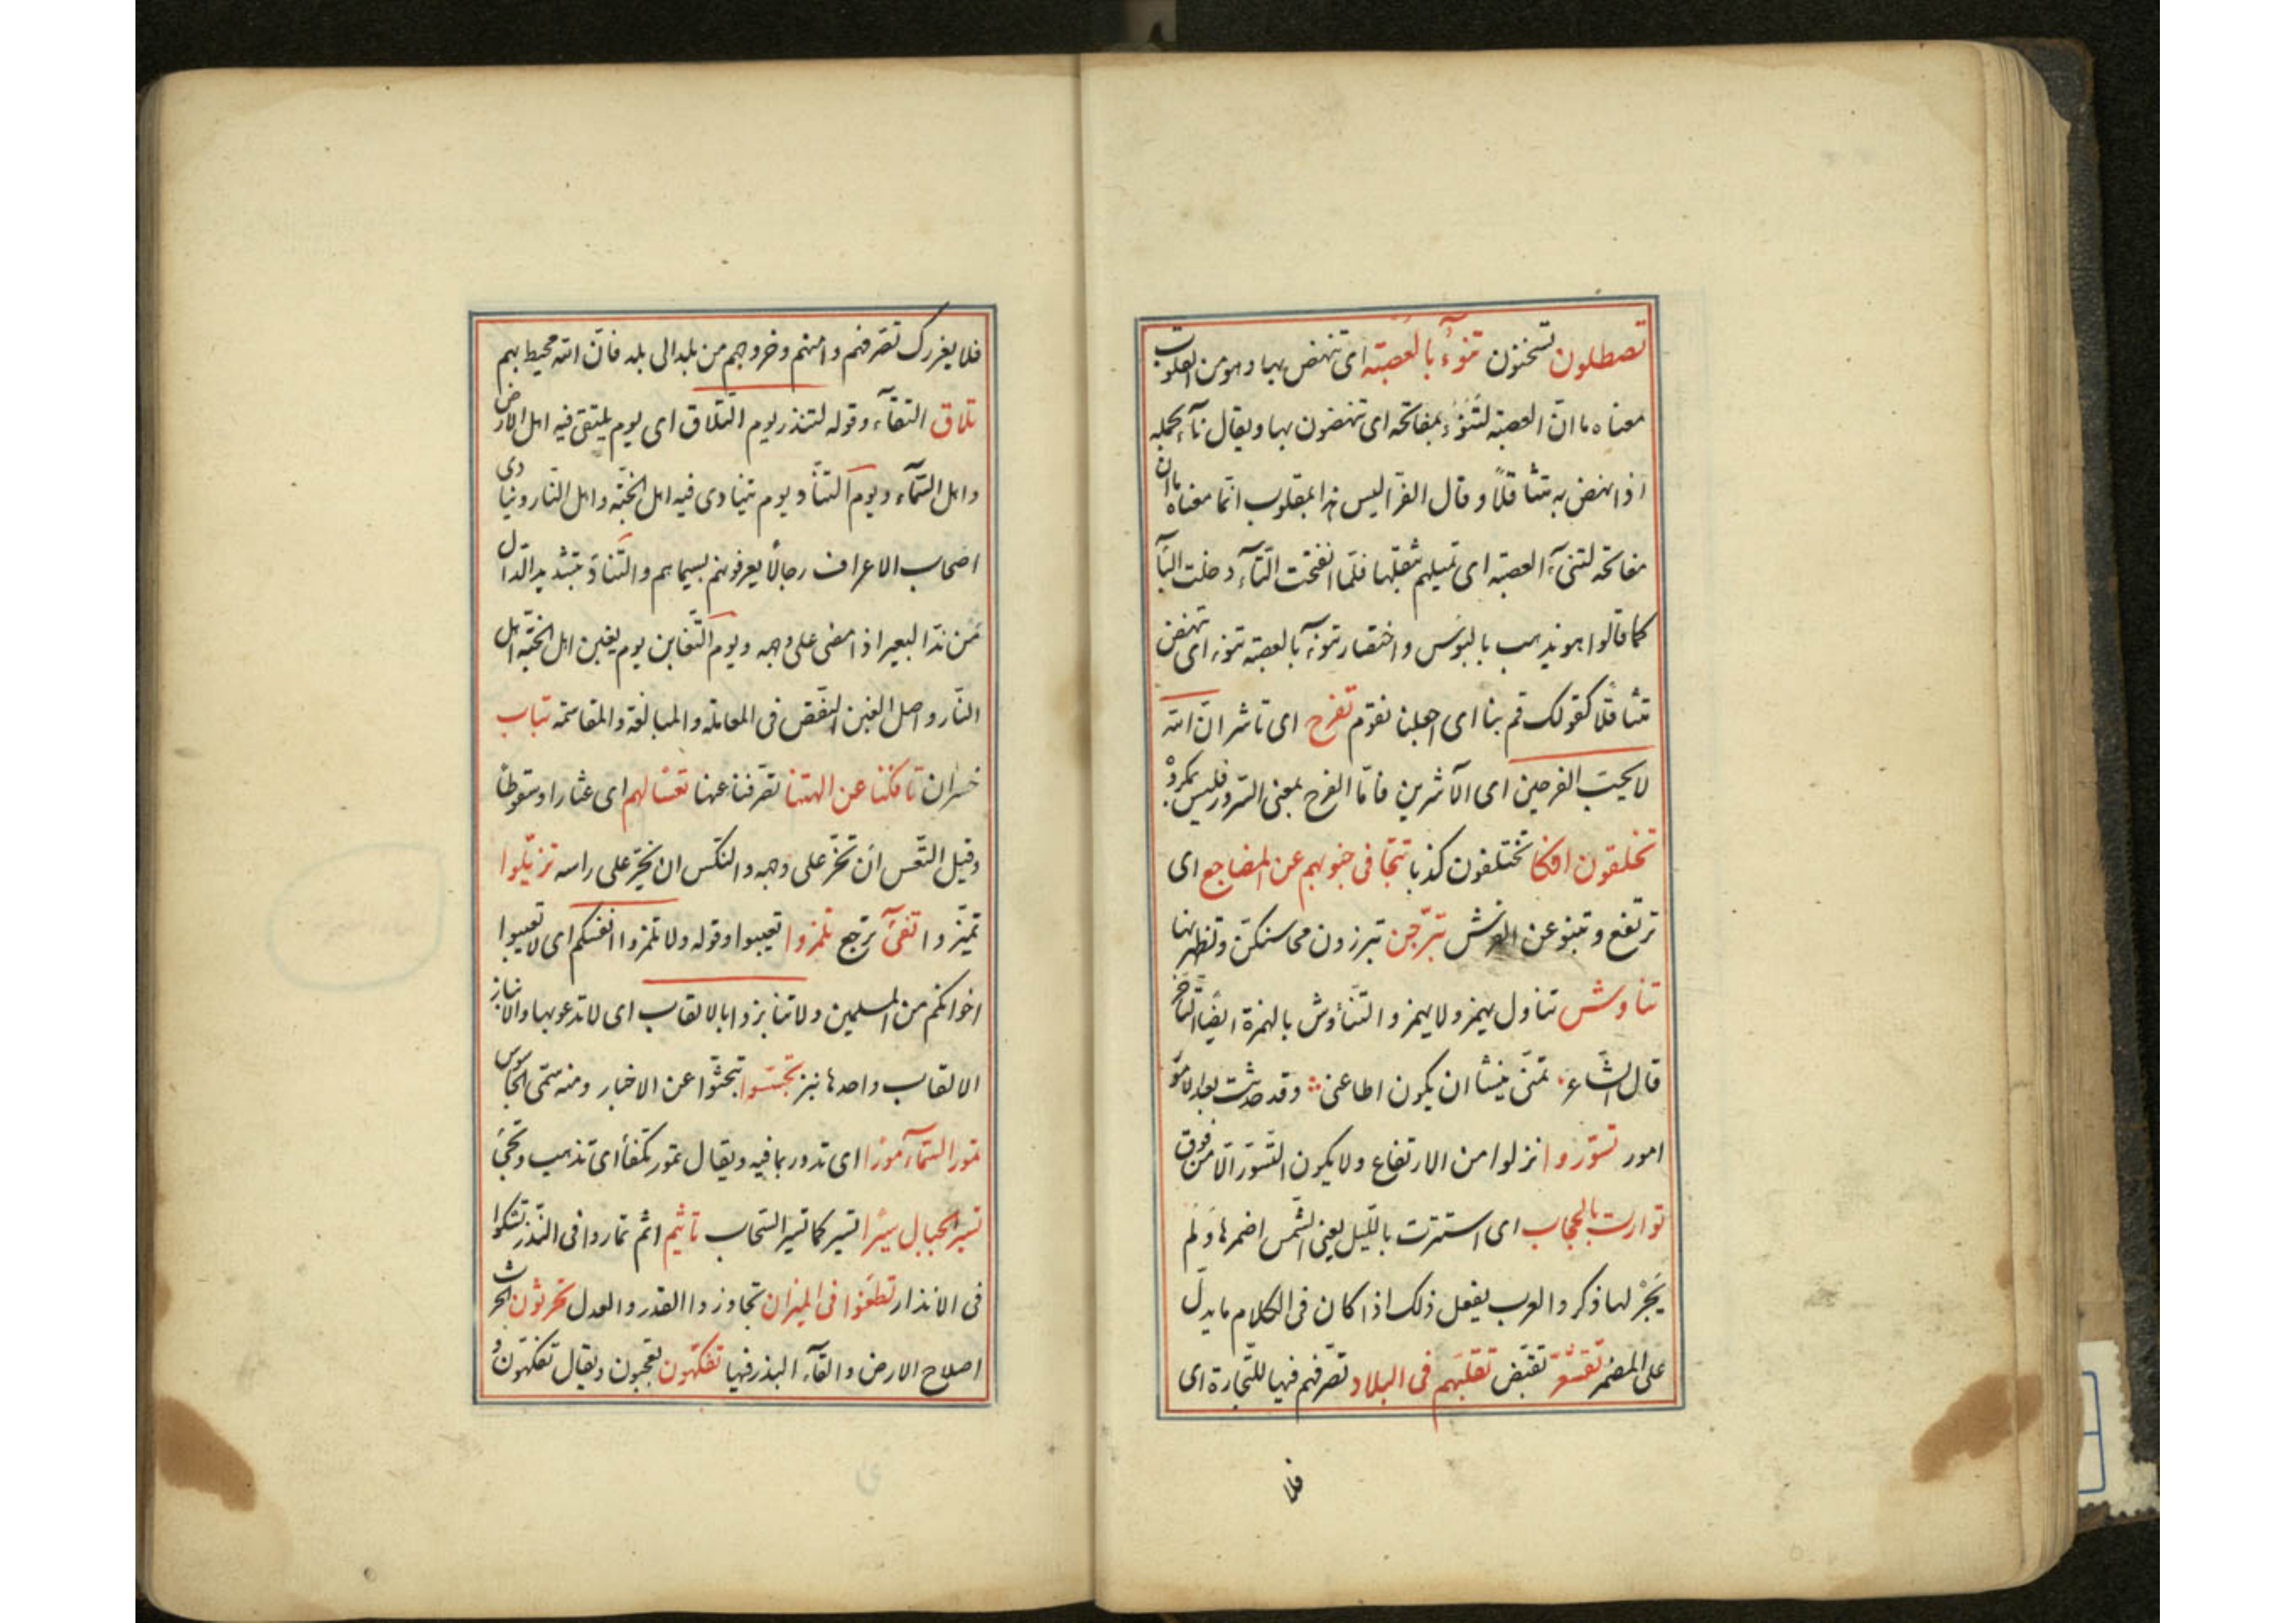 تصطلون تسخنون تنوء بالعصبة اى تنهض بها وهو من المقلوب
معناه ما انّ العصبة لتنوء بمفاتحه اى تنهضون بها ويقال نآء بحمله
اذا نهض به متثاقلاً وقال الفرّا ليس هذا بمقلوب انّما معناه ما ان
مفاتحه لتنئ العصبة اى تميلهم بثقلها فلمّا انفتحت التّآء دخلت البآ
كما قالوا هو يذهب بالبؤس واختصار تنوء بالعصبة تنوء اى تنهض
متثاقلا كقولك قم بنا اى اجعلنا نقوم تفرح اى تاشر انّ الله
لا يحبّ الفرحين اى الآشرين فامّا الفرح بمعنى السّرور فليس بمكروه
تخلقون افكا تختلقون كذبا تتجافى جنوبهم عن المضاجع اى
ترتفع وتنبو عن الفرش تبرّجن تبرزون محاسنكنّ وتظهرنها
تناوش تناول يهمز ولا يهمز والتّناؤش بالهمزة ايضا التّاخّر
قال الشّاعر تمنّى نئيشا ان يكون اطاعنى وقد حدثت بعد الامور
امور تسوّروا نزلوا من الارتفاع ولا يكون التّسوّر الّا من فوق
توارت بالحجاب اى استترت باللّيل يعنى الشّمس اضمرها ولم
يجر لها ذكر والعرب يفعل ذلك اذا كان فى الكلام ما يدلّ
على المضمر تقشعرّ تقبّض تقلّبهم فى البلاد تصرّفهم فيها للتّجارة اى
فلا
فلا يغررك تصرّفهم وامنهم وخروجهم من بلد الى بلد فانّ الله محيط بهم
تلاق التقآء وقوله لتنذر يوم التّلاق اى يوم يلتقى فيه اهل الارض
واهل السّمآء ويوم التّناد يوم يتنادى فيه اهل الجنّة واهل النّار وينادى
اصحاب الاعراف رجالا يعرفونهم بسيماهم والتّنادّ بتشديد الدّال
من ندّ البعير اذا مضى على وجهه ويوم التّغابن يوم يغبن اهل الجنّة اهل
النّار واصل الغبن النّقص فى المعاملة والمبالغة والمقاسمة تباب
خسران تافكنا عن الهتنا تصرّفنا عنها تعسا لهم اى عثارا وسقوطا
وقيل التّعس ان تخرّ على وجهه والنّكس ان يخرّ على راسه تزيّلوا
تميّزوا تفئ ترجع تلمزوا تعيبوا وقوله ولا تلمزوا انفسكم اى لا تعيبوا
اخوانكم من المسلمين ولا تنابزوا بالالقاب اى لا تدعوا بها والانباز
الالقاب واحدها نبز تجسّسوا تبحثوا عن الاخبار ومنه سمّى الجاسوس
تمور السّمآء مورا اى تدور بما فيه ويقال تمور تكفّأ اى تذهب وتجئ
تسير الجبال سيرا تسير كما تسير السّحاب تاثيم اثم تماروا فى النّذر تشكوا
فى الانذار تطغوا فى الميزان تجاوزوا القدر والعدل تحرثون الحرث
اصلاح الارض والقآء البذر فيها تفكّهون تعجبون ويقال تفكّهون و